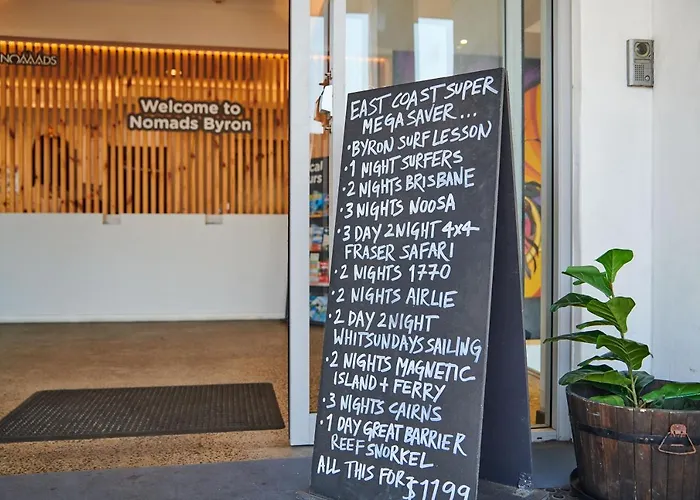 NOMADS
Welcome to
Nomads Byron
EAST COAST SUPER
MEGA SAVER...
•BYRON SURF LESSON)
•1 NIGHT SURFERS
•2 NIGHTS BRISBANE
•3 NIGHTS NOOSA
•3 DAY 2NIGHT 4x4
FRASER SAFARI
•2 NIGHTS 1770
•2 NIGHTS AIRLIE
•2 DAY 2NIGHT
WHITSUNDAYS SAILING
•2 NIGHTS MAGNETIC
ISLAND + FERRY
•3 NIGHTS CAIRNS
•1 DAY GREAT BARRIER
REEF SNORKEL
ALL THIS FOR $1199